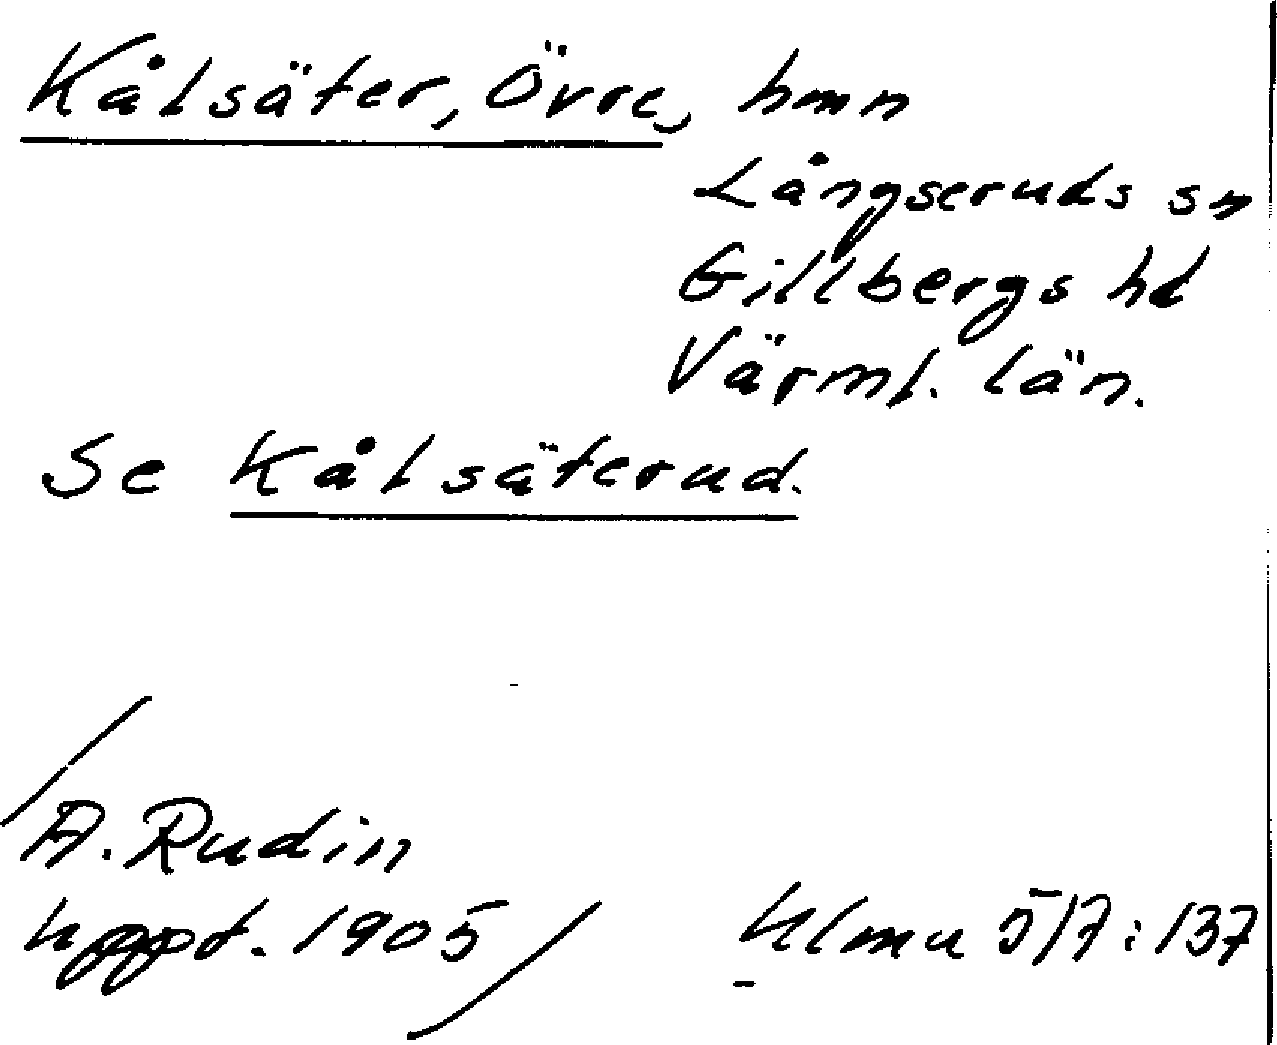 Kålsäter, Övre, hmn
Långseruds sn
Gillbergs hd
Värml. län.
Se Kålsäterud.
/A. Rudin
uppt. 1905/ Ulma 517:137